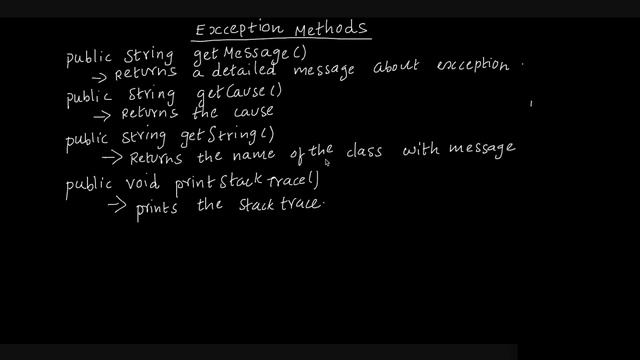 Exception Methods
public String getMessage()
→ Returns a detailed message about exception.
public String getCause()
→ Returns the cause
public String getString()
→ Returns the name of the class with message
public void printStackTrace()
→ prints the stack trace.